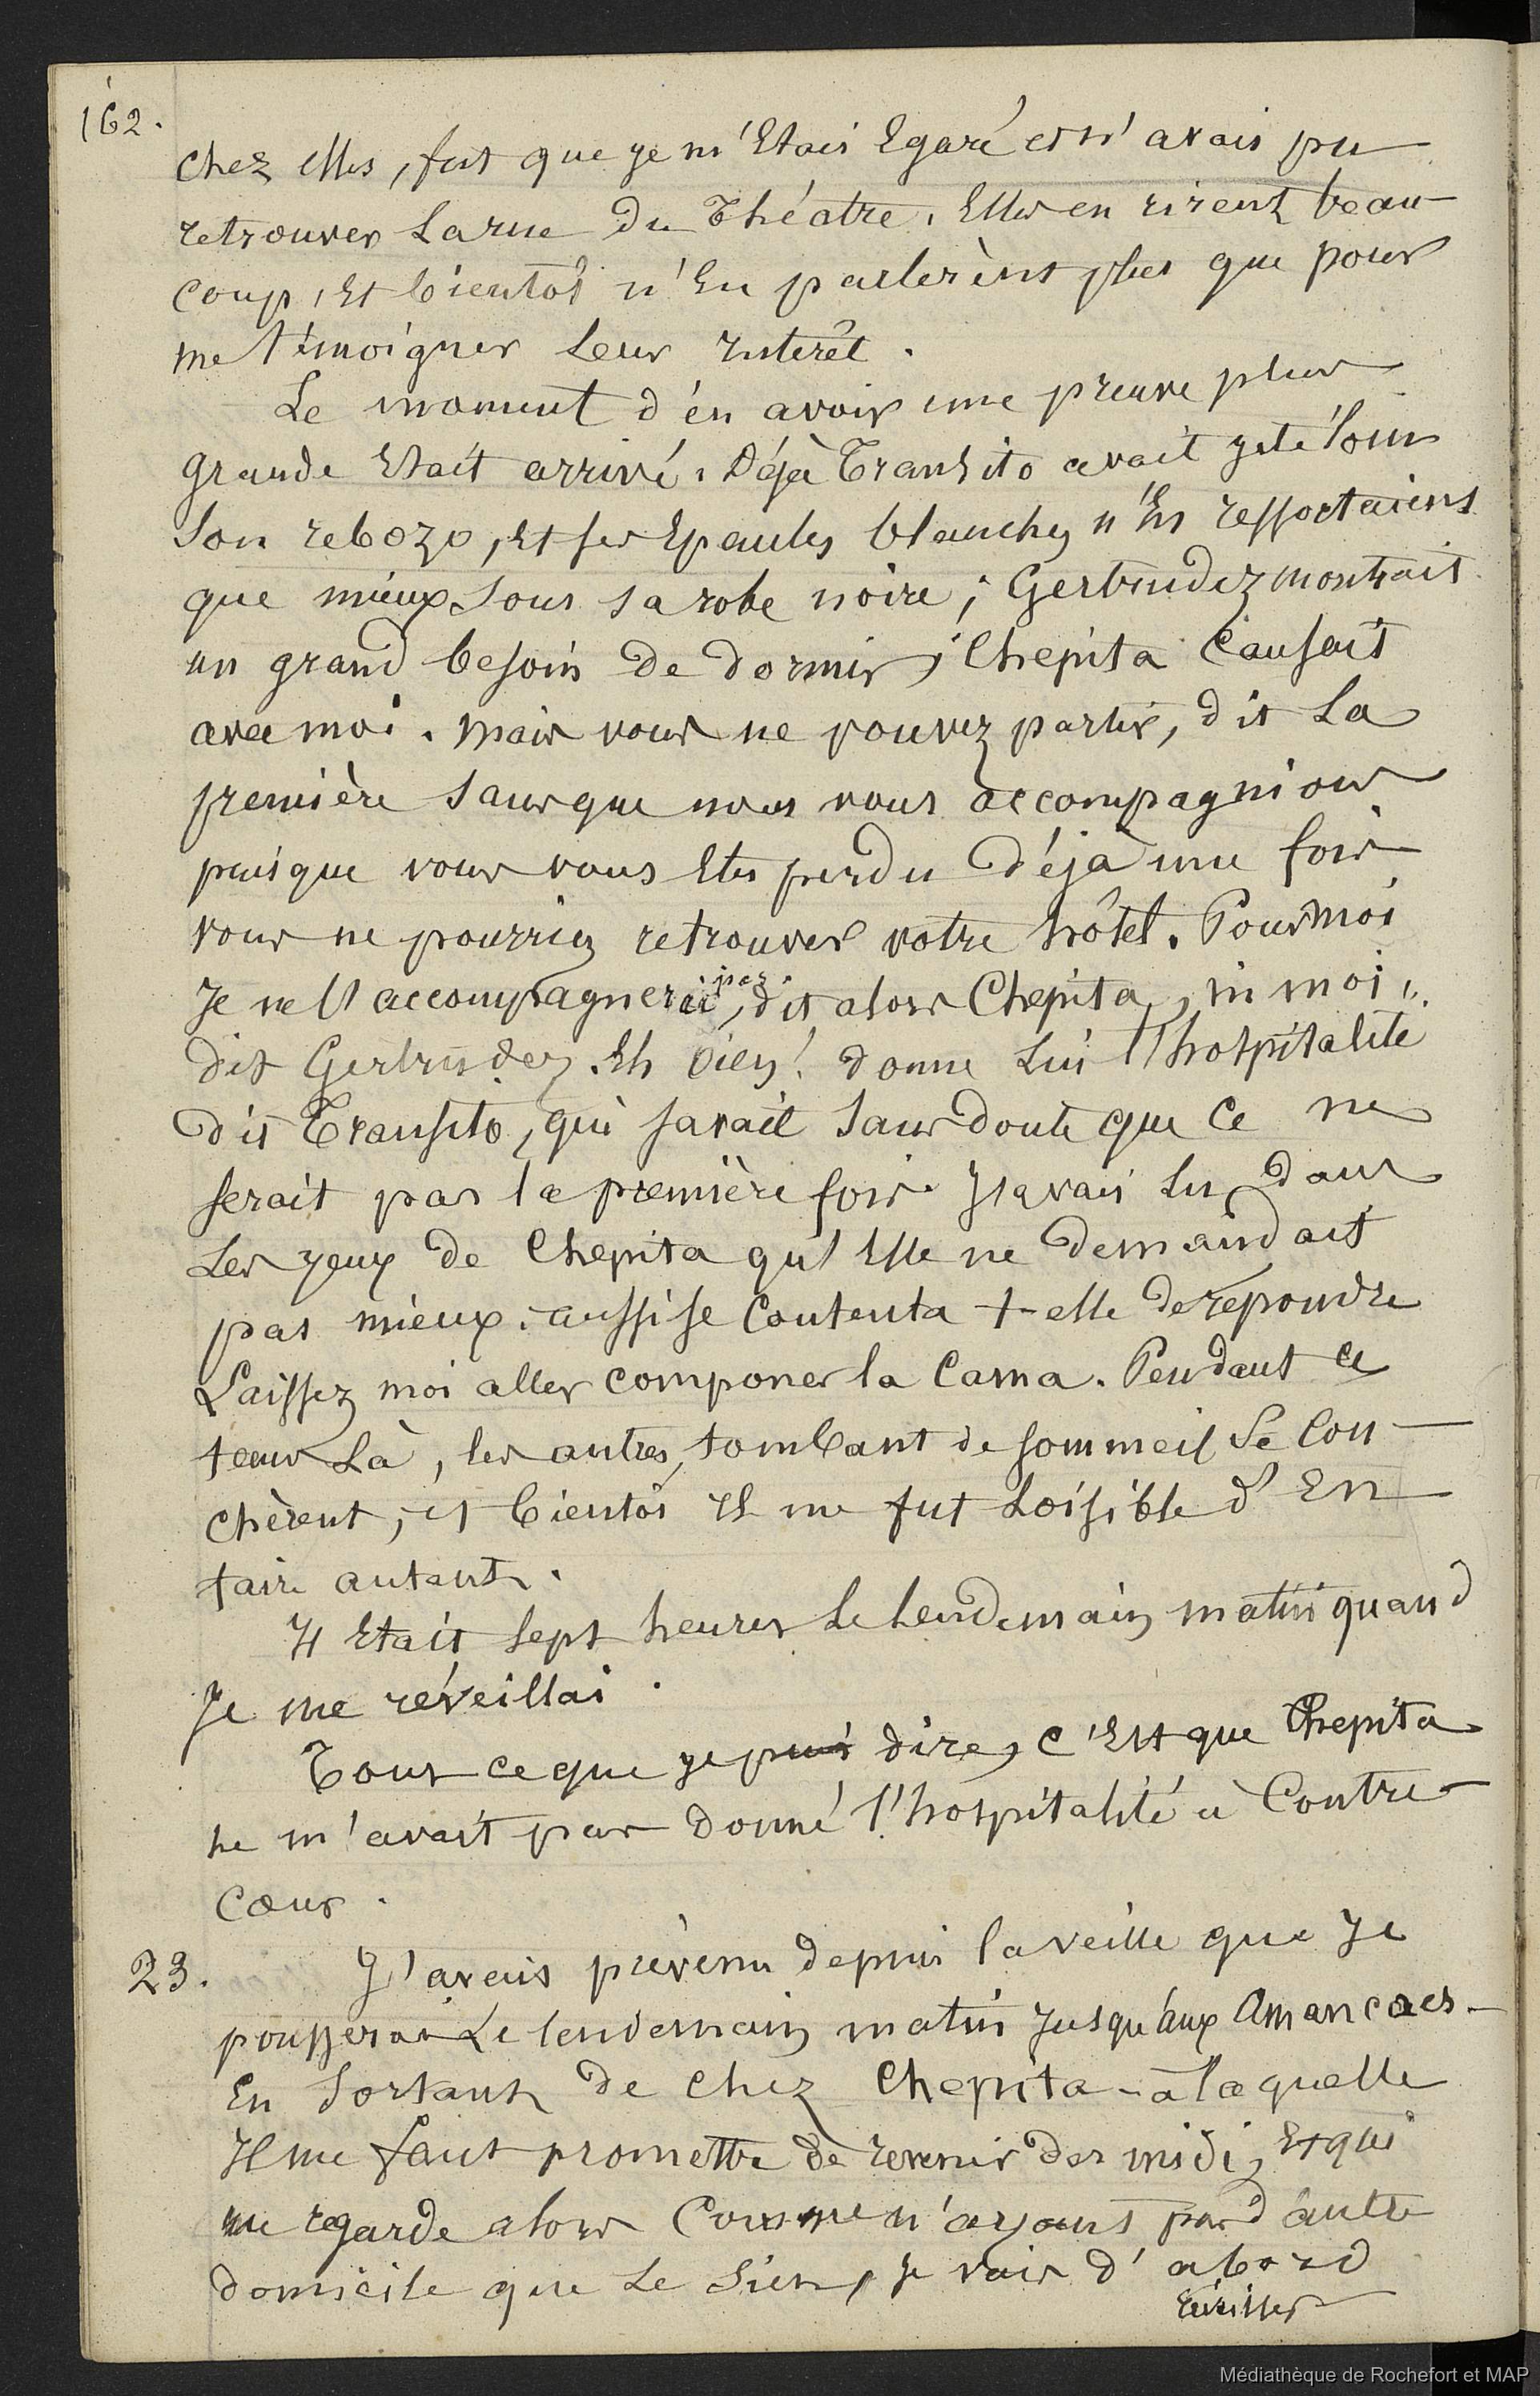 162.
chez elles, fut que je m'etais egaré et n'avais pu
retrouver la rue du Théatre. Elles en rirent beau
coup, et bientôt n'en parlerènt plus que pour
me témoigner leur interêt.
Le moment d'en avoir une preuve plus
grande etait arrivé. Déjà Transito avait jeté loin
son rebozo, et ses epaules blanches n'en ressortaient
que mieux sous sa robe noire; Gertrudez montrait
un grand besoin de dormir; Chepita causait
avec moi. Mais vous ne pouvez partir, dit la
première sans que nous vous accompagnions
puisque vous vous etes perdu déjà une fois
vous ne pourriez retrouver votre hôtel. Pour moi
je ne l'accompagnerai pas, dit alors Chepita, ni moi,
dit Gertrudez. Eh bien! donne lui l'hospitalité
dit Transito, qui savait sans doute que ce ne
serait pas la première fois. J'avais lu dans
les yeux de Chepita qu'elle ne demandait
pas mieux. aussi se contenta t-elle de répondre
Laissez moi aller componer la cama. Pendant ce
temps là, les autres, tombant de sommeil se cou-
chèrent, et bientôt il me fut loisible d'en
faire autant.
Il etait sept heures le lendemain matin quand
je me réveillai.
Tout ce que je puis dire, c'est que Chepita
ne m'avait pas donné l'hospitalité à contre-
cœur.
23. J'avais prèvenu depuis la veille que je
pousserai le lendemain matin jusqu'aux Amancaes-
En sortant de chez Chepita - à laquelle
il me faut promettre de revenir des midi, et qui
me regarde alors comme n'ayant pas d'autre
domicile que le sien, je vais d'abord
réveiller
Médiathèque de Rochefort et MAP